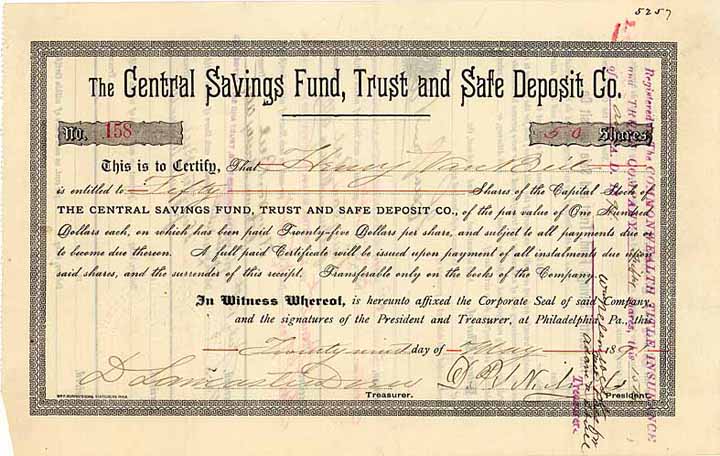 5257
The Central Savings Fund, Trust and Safe Deposit Co.
No. 158 50 Shares
This is to Certify, That Henry
is entitled to Fifty Shares of the Capital Stock of
THE CENTRAL SAVINGS FUND, TRUST AND SAFE DEPOSIT CO., of the par value of One Hundred
Dollars each, on which has been paid Twenty-five Dollars per share, and subject to all payments due or
to become due thereon. A full paid Certificate will be issued upon payment of all instalments due upon
said shares, and the surrender of this receipt. Transferable only on the books of the Company.
In Witness Whereof, is hereunto affixed the Corporate Seal of said Company,
and the signatures of the President and Treasurer, at Philadelphia, Pa., this
day of May 189
D Lancaster
Treasurer. President.
Registered
THE COMMONWEALTH TITLE INSURANCE
and TRUST COMPANY, this
of A. D. 18
Treasurer.